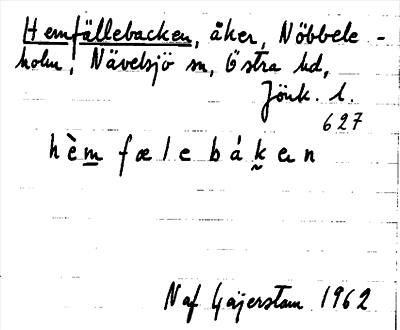 Hemfällebacken, åker, Nöbbele-
holm, Nävelsjö sn, Östra hd,
Jönk. l.
627
hèm fælebákan
Naf Gajerstam 1962